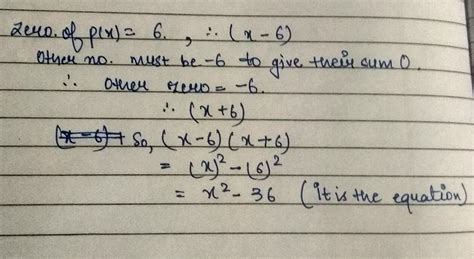 Zero of p(x) = 6. , ∴ (x-6)
Other no. must be -6 to give their sum 0.
∴ Other zero = -6.
∴ (x+6)
(x-6)+ So, (x-6) (x+6)
= (x)² - (6)²
= x² - 36 (it is the equation)